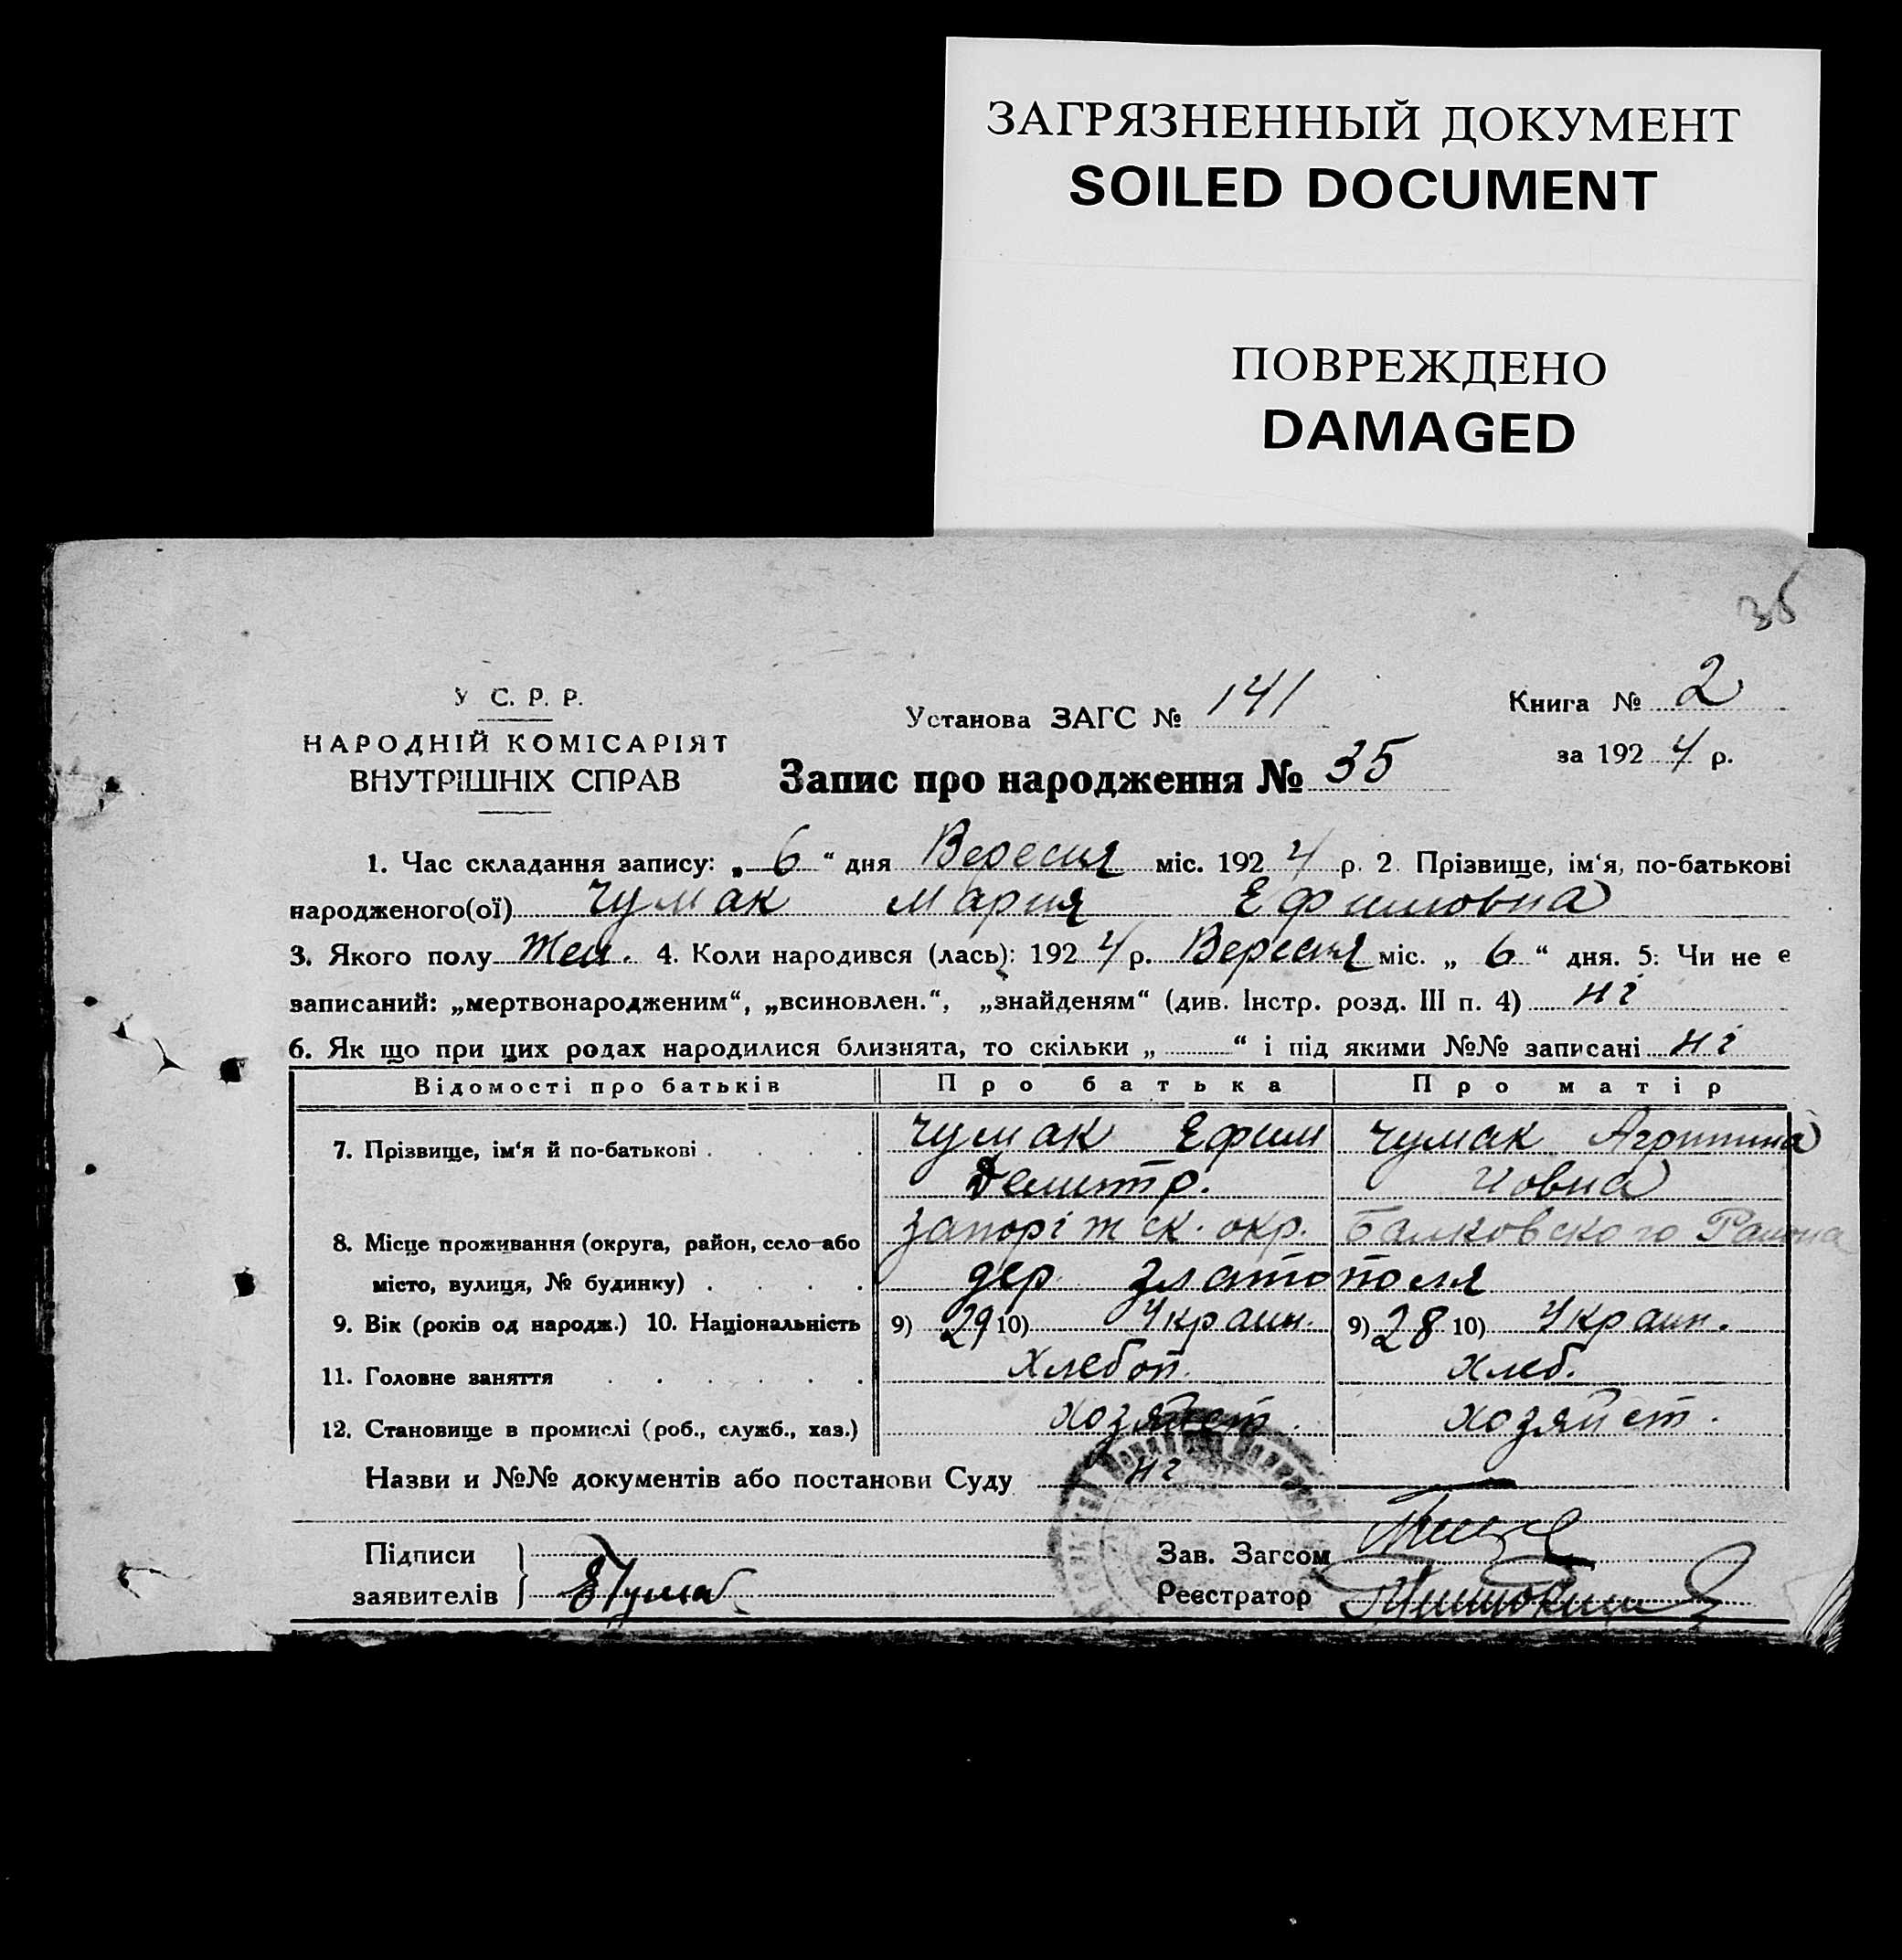 ЗАГРЯЗНЕННЫЙ ДОКУМЕНТ
SOILED DOCUMENT
ПОВРЕЖДЕНО
DAMAGED
У С. Р. Р.
НАРОДНІЙ КОМІСАРІЯТ
ВНУТРІШНІХ СПРАВ
Установа ЗАГС № 141
Книга № 2
за 1924 р.
Запис про народження № 35
1. Час складання запису: „6“ дня Вересня міс. 1924 р. 2. Прізвище, ім‘я, по-батькові
народженого(ої) Чумак Мария Ефимовна
3. Якого полу Жен. 4. Коли народився (лась): 1924 р. Вересня міс. „6“ дня. 5: Чи не е
записаний: „мертвонародженим“, „всиновлен.“, „знайденям“ (див. Інстр. розд. III п. 4) ні
6. Як що при цих родах народилися близнята, то скільки „ “ і під якими №№ записані ні
Відомості про батьків Про батька Про матір
7. Прізвище, ім‘я й по-батькові . . . . Чумак Ефим Чумак Агрипина
Демитр. Иовна
8. Місце проживання (округа, район, село або Запоріжск. окр. Балковского Раиона
місто, вулиця, № будинку) . . . . дер Златополя
9. Вік (років од народж.) 10. Національність 9) 29 10) Украин. 9) 28 10) Украин.
11. Головне заняття . . . . . . Хлебоп. хлеб.
12. Становище в промислі (роб., служб., хаз.) хозяйст. хозяйст.
Назви и №№ документів або постанови Суду ні
Підписи
Зав. Загсом
заявителів
Реєстратор